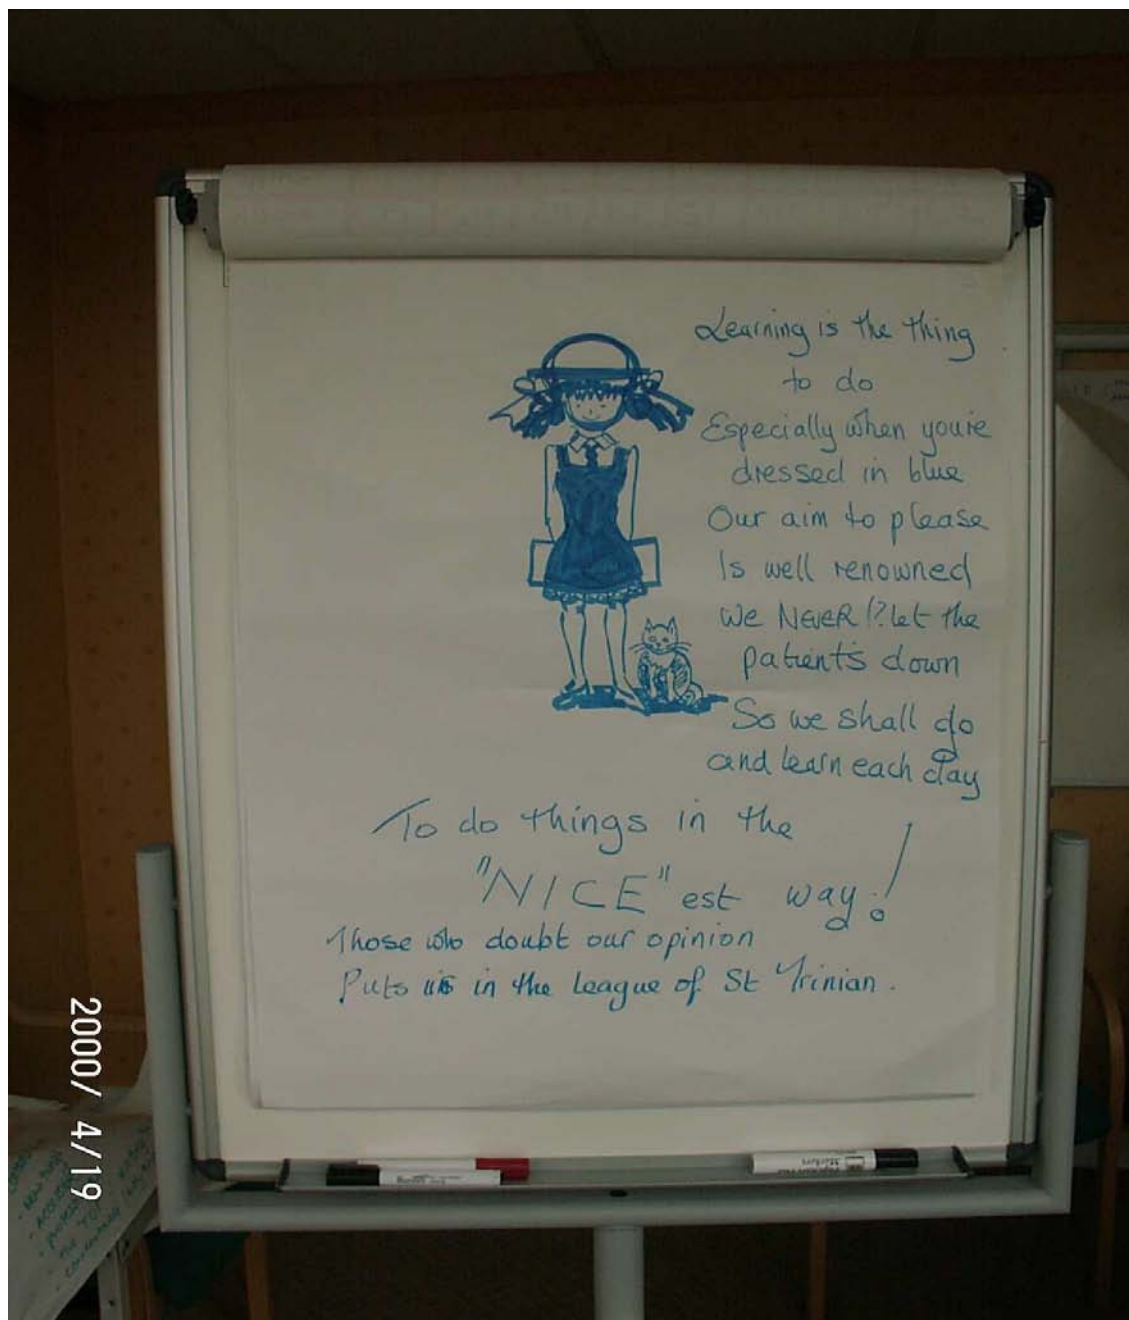 Learning is the thing
to do
Especially when you're
dressed in blue
Our aim to please
Is well renowned
We NEVER!? let the
patients down
So we shall go
and learn each day
To do things in the
"NICE"est way!
Those who doubt our opinion
Puts us in the league of St Trinian.
2000/ 4/19
Markers